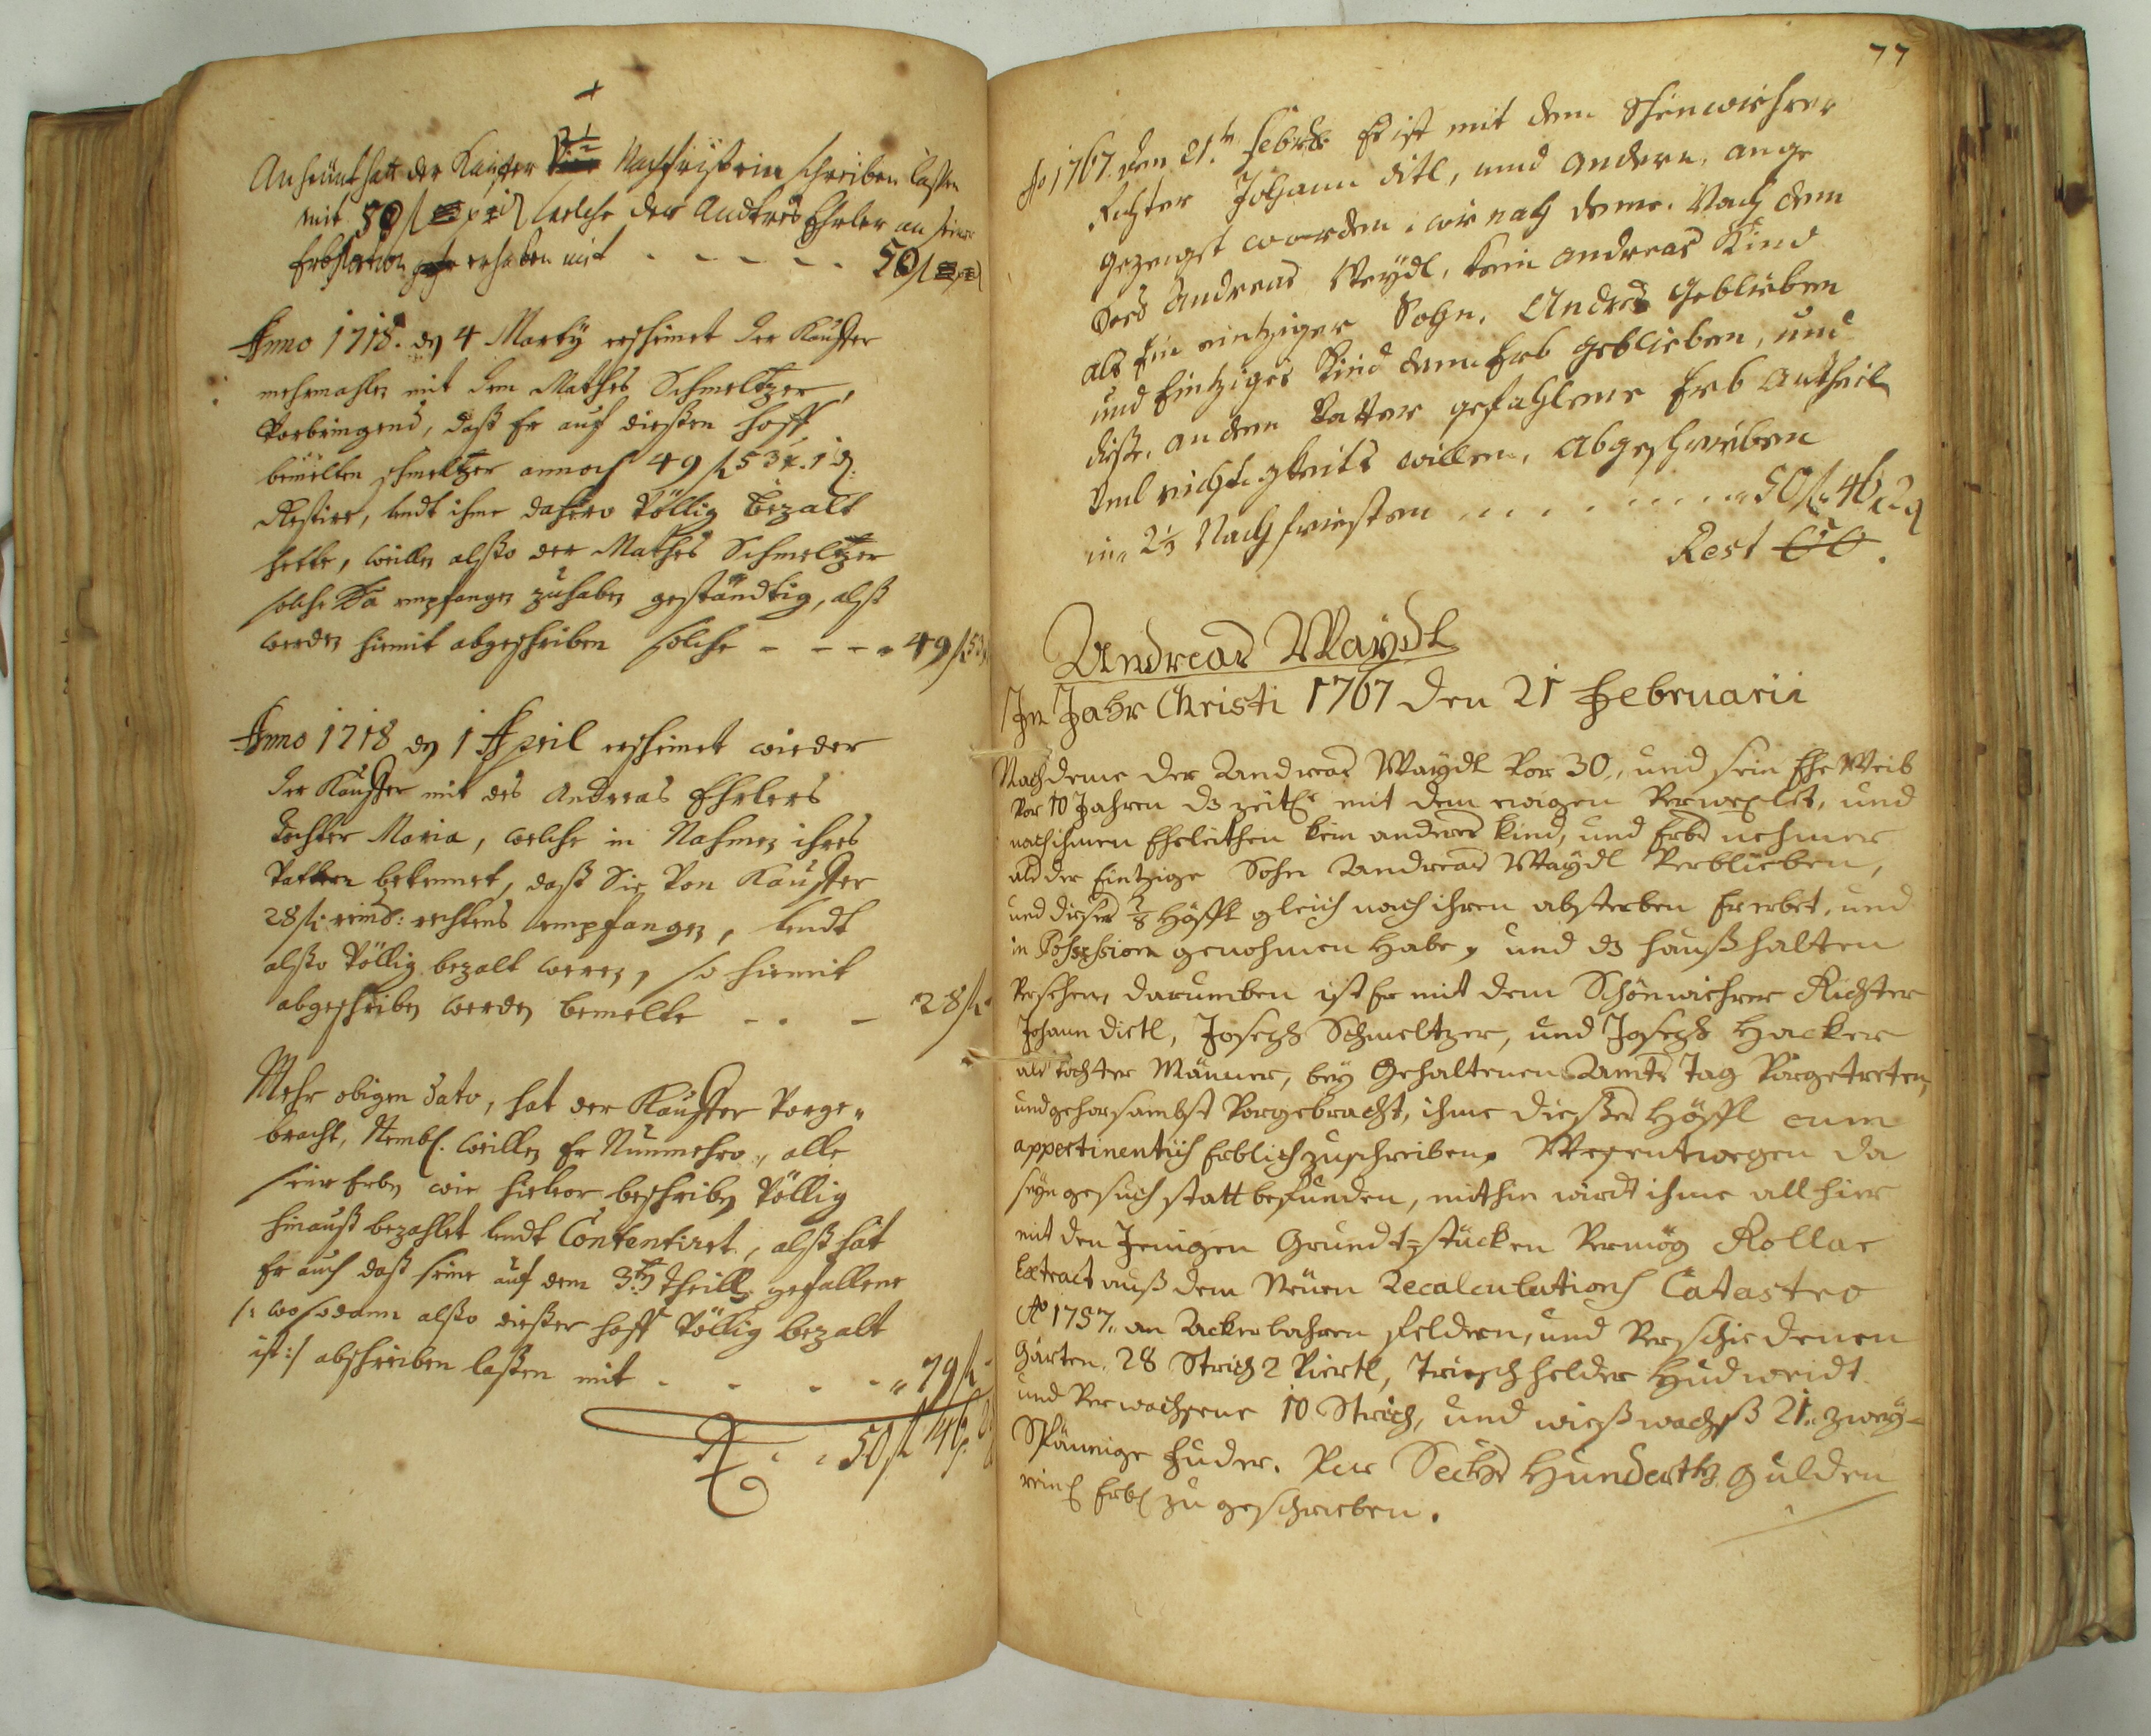 Anheunt hatt der Kauffer 2 1/2 Nachfristen schreiben laßen
mit 50 f welche der Andreas Ehrler an seiner
Erbportion erhaben mit - - - - - 50 f
Anno 1718. dn 4 Marty erscheinet der Kauffer
mehrmahln mit dem Mathes Schmeltzer,
Vorbringend, daß Er auf dießen hoff
bemelten schmeltzer annoch 49 f 53 x. 1 d.
Restire, undt ihme dahero Völlig bezalt
hette, weilln alßo der Mathes Schmeltzer
solche empfangen zuhaben geständtig, alß
werden hiemit abgeschriben solche - - - 49 f 53
Anno 1718 dn 1 April erscheinet wieder
der Kauffer mit des Andreas Ehrlers
Tochter Maria, welche in Nahmen ihres
Vattern bekennet, daß Sie Von Kauffer
28 f: reinl: rechtens empfangen, undt
alßo Völlig bezalt weren, so hiemit
abgeschriben werden bemelte - - - 28 f
Mehr obigen dato, hat der Kauffer Vorge„
bracht, Nembl. weilln Er Nunmehro, alle
seine Erben wie hievor beschriben Völlig
hinauß bezahlet undt Contentiret, alß hat
Er auch daß seine auf dem 3ten theill gefallene
/: wo sodann alßo dießer hoff Völlig bezalt
ist :/ abschreiben laßen mit - - - - „ 79 f
50 f 46
77
Ao 1767 den 21.ten Febr: Es ist mit dem Schenwiehrer
Richter Johann ditl, und andern, ange
gezeugt worden, wie nach deme. Nach dem
Dod Andreas Weydl, kein anderes Kind
als Ein eintziger Sohn, Andres geblieben
und Eintziges Kind dem Erb geblieben, und
diße, an dem Vatter gefahlene Erb Antheil
Umb richtigkeits willen, abgeschrieben
in 2 1/3 Nach friesten . . . . . . . 50 f 46 x 2 d
Rest 00.
Andreas Waydl
Im Jahr Christi 1767 den 21 Februarii
Nachdeme der Andreas Waydl Vor 30„ und sein Ehe Weib
Vor 10 Jahren dz zeitl: mit dem ewigen Verwexlet, und
nach ihnen Eheleithen kein anderes kind, und Erbs nehmer
als der Eintzige Sohn Andreas Waydl Verblieben,
und dießes 1/8 Höffl gleich nach ihren absterben Ererbet, und
in Possession genohmen Habe, und dz haußhalten
Versehen, darumben ist Er mit dem Schönwiehrer Richter
Johann dietl, Joseph Schmeltzer, und Joseph Hacker
als Tochter Männer, bey Gehaltenen Ambts Tag Vorgetreten,
und gehorsambst Vorgebracht, ihme dießes Höffl cum
appertinentiis Erblich zuschreiben, Weßentwegen da
seyn gesuch statt befunden, mithin wirdt ihme all hier
mit den Jenigen Grundt=stücken Vermög Rollar
Extract auß dem Neuen Recalculations Catastro
Ao 1757„ an Ackerbahren feldern, und Verschiedenen
Gärten, 28 Strich 2 Viertl, Trieschfelder Hudweidt
und Verwachsene 10 Strich, und wießwachß 21„ zwey=
Spännige Fuder. Per Sechs Hunderth Gulden
reinl Erbl zu geschrieben.